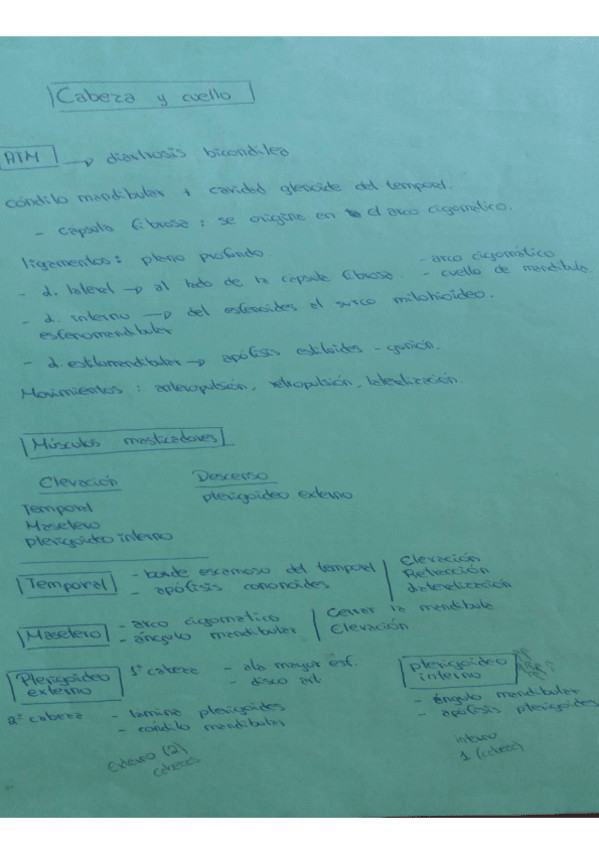 Cabeza y cuello
ATM → diartrosis bicondilea
cóndilo mandibular + cavidad glenoide del temporal.
- capsula fibrosa : se origina en el arco cigomático.
ligamentos : plano profundo.
- l. lateral → al lado de la capsula fibrosa - arco cigomático - cuello de mandibula
- l. interno → del esfenoides al surco milohioideo.
esfenomandibular
- l. estilomandibular → apófisis estiloides - gonion.
Movimientos : antepulsión, retropulsión, lateralización.
Músculos masticadores
Elevación Descenso
Temporal pterigoideo externo
Masetero
pterigoideo interno
Temporal - borde escamoso del temporal Elevación
- apófisis coronoides Retracción
Lateralización
Masetero - arco cigomatico Cerrar la mandibula
- ángulo mandibular Elevación
Pterigoideo externo 1ª cabeza - ala mayor esf.
- disco art.
2ª cabeza - lamina pterigoides
- condilo mandibular
Externo (2) cabezas
pterigoideo interno
- ángulo mandibular
- apófisis pterigoides
interno
1 (cabeza)